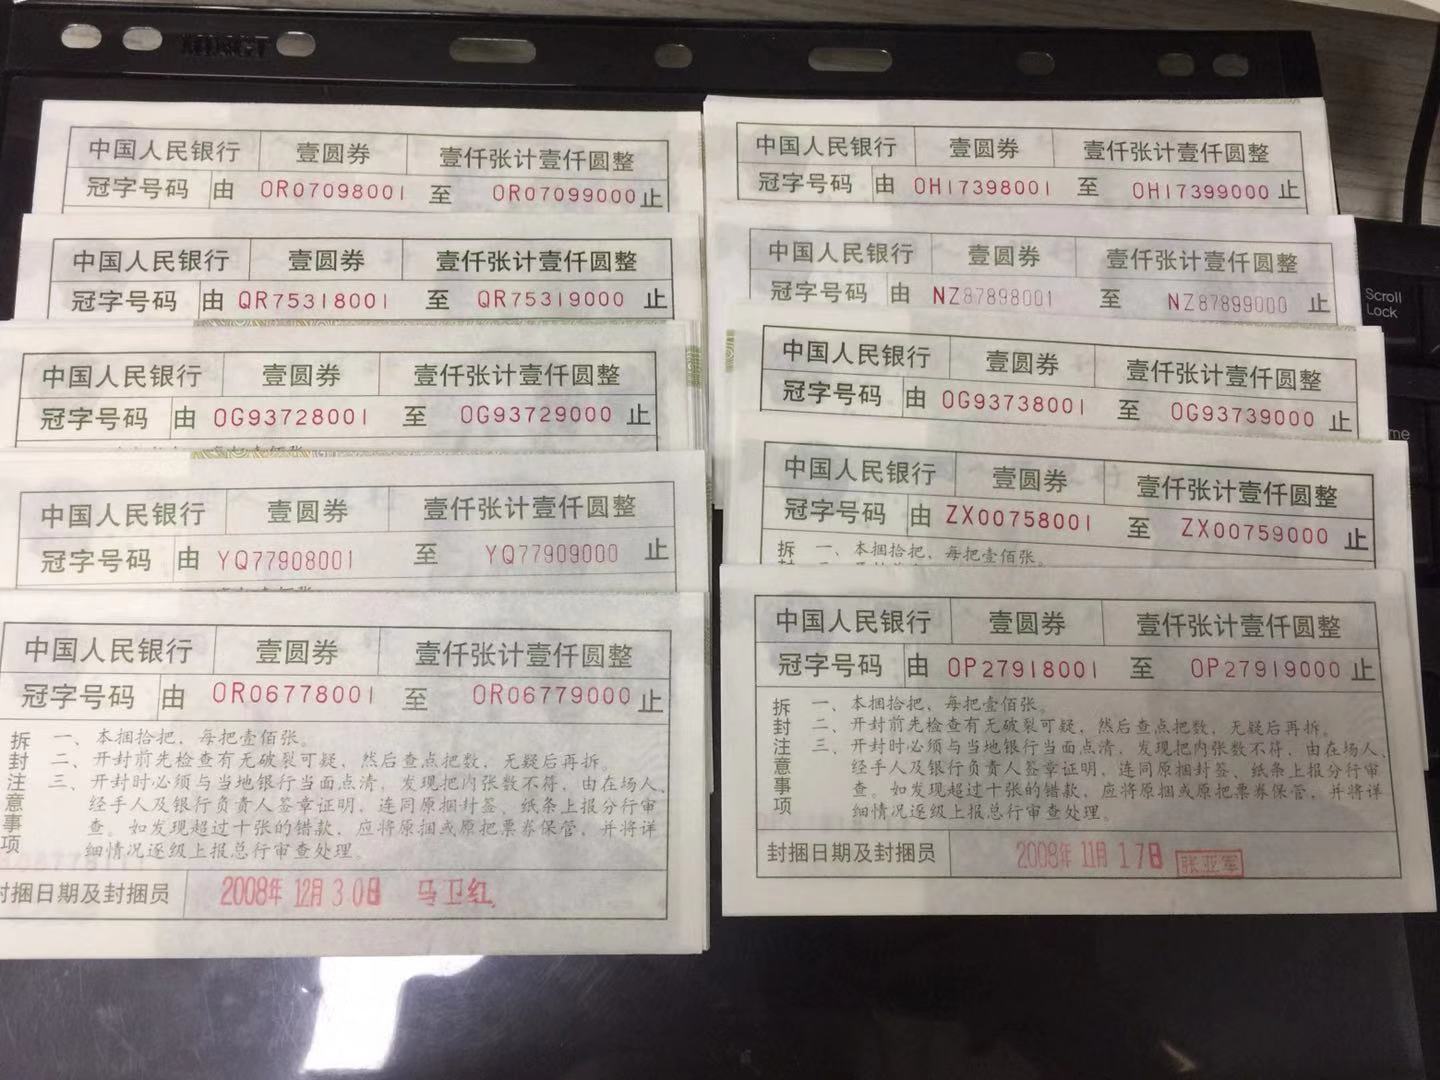 中国人民银行 壹圆券 壹仟张计壹仟圆整
冠字号码 由 OR07098001 至 OR07099000 止
中国人民银行 壹圆券 壹仟张计壹仟圆整
冠字号码 由 QR75318001 至 QR75319000 止
中国人民银行 壹圆券 壹仟张计壹仟圆整
冠字号码 由 OG93728001 至 OG93729000 止
中国人民银行 壹圆券 壹仟张计壹仟圆整
冠字号码 由 YQ77908001 至 YQ77909000 止
中国人民银行 壹圆券 壹仟张计壹仟圆整
冠字号码 由 OR06778001 至 OR06779000 止
拆封注意事项
一、本捆拾把，每把壹佰张。
二、开封前先检查有无破裂可疑，然后查点把数，无疑后再拆。
三、开封时必须与当地银行当面点清，发现把内张数不符，由在场人、
经手人及银行负责人签章证明，连同原捆封签、纸条上报分行审
查。如发现超过十张的错款，应将原捆或原把票券保管，并将详
细情况逐级上报总行审查处理。
封捆日期及封捆员 2008年12月30日 马卫红
中国人民银行 壹圆券 壹仟张计壹仟圆整
冠字号码 由 OH17398001 至 OH17399000 止
中国人民银行 壹圆券 壹仟张计壹仟圆整
冠字号码 由 NZ87898001 至 NZ87899000 止
中国人民银行 壹圆券 壹仟张计壹仟圆整
冠字号码 由 OG93738001 至 OG93739000 止
中国人民银行 壹圆券 壹仟张计壹仟圆整
冠字号码 由 ZX00758001 至 ZX00759000 止
拆 一、本捆拾把，每把壹佰张。
中国人民银行 壹圆券 壹仟张计壹仟圆整
冠字号码 由 OP27918001 至 OP27919000 止
拆封注意事项
一、本捆拾把，每把壹佰张。
二、开封前先检查有无破裂可疑，然后查点把数，无疑后再拆。
三、开封时必须与当地银行当面点清，发现把内张数不符，由在场人、
经手人及银行负责人签章证明，连同原捆封签、纸条上报分行审
查。如发现超过十张的错款，应将原捆或原把票券保管，并将详
细情况逐级上报总行审查处理。
封捆日期及封捆员 2008年11月17日 张亚军
Scroll
Lock
me